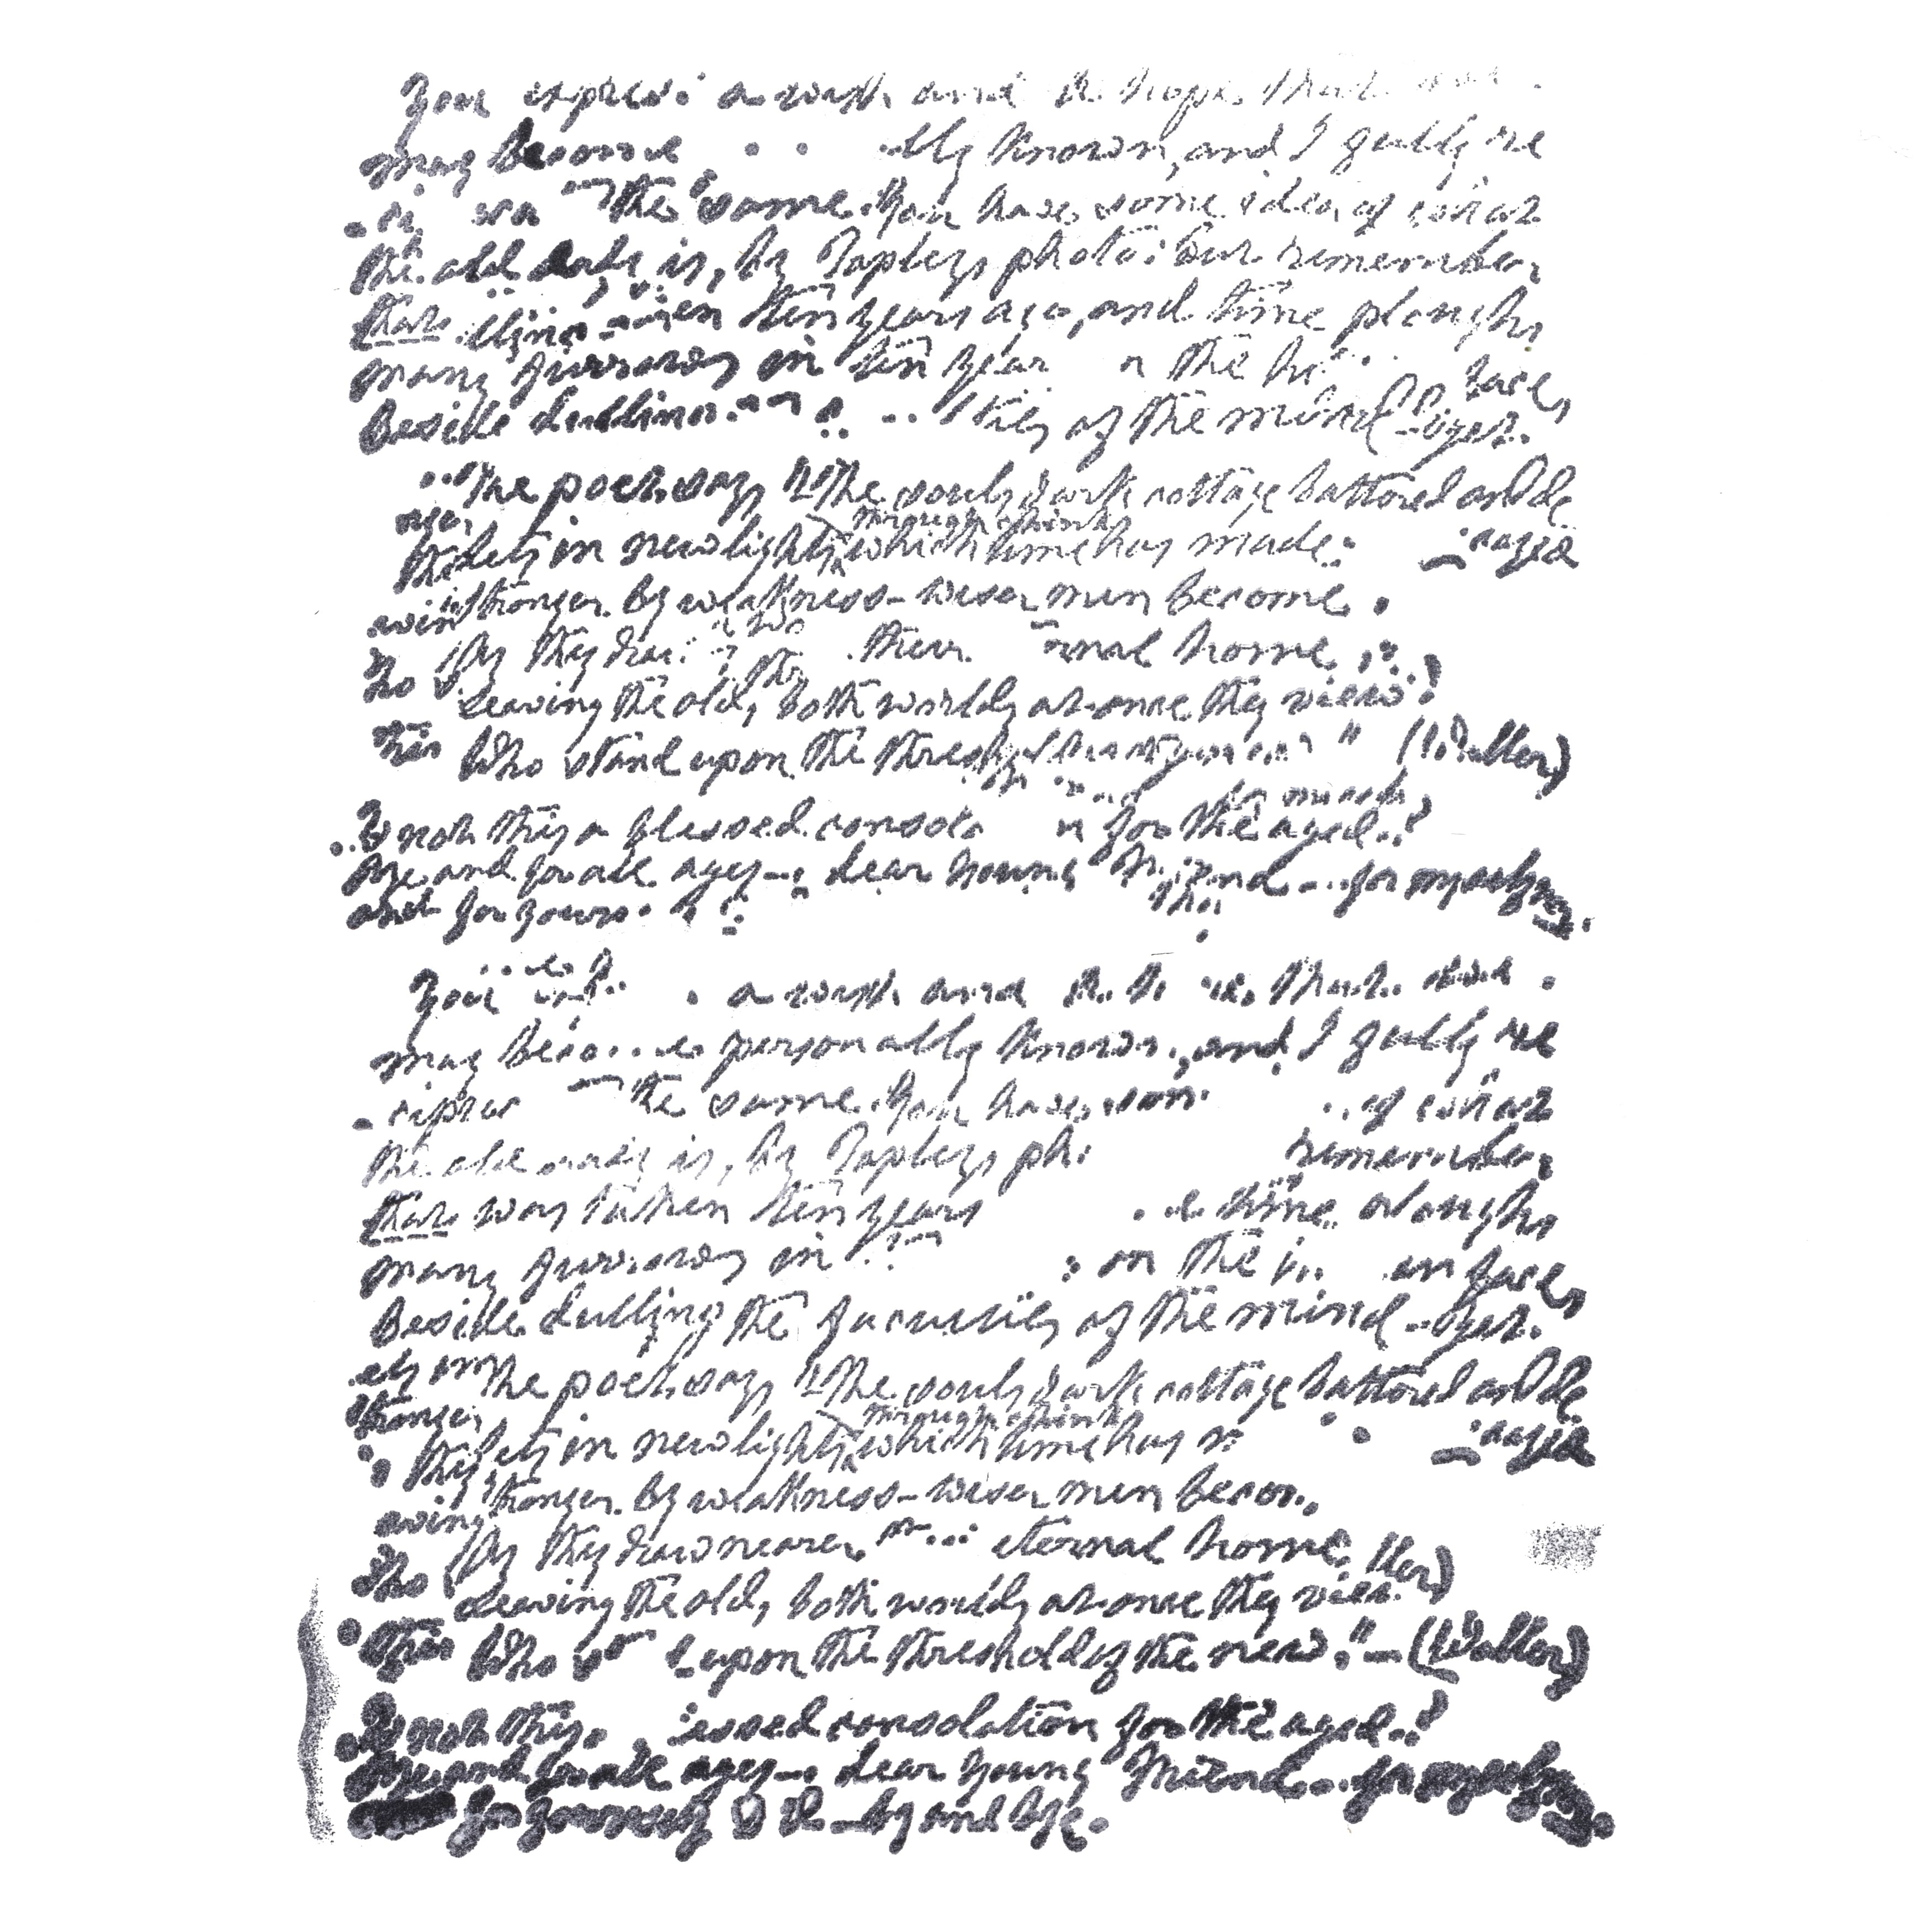 You express a wish and a hope that we
may become ally known, and I fully re
the same. You have some idea of what
the old lady is, by Tapley's photo: but remember,
that ten years ago, and time ploughs
many furrows in ten year the face,
Beside dulling ties of the mind - yet.
The poet says "The soul's dark cottage battered and de
lets in new light, through chinks which time has made: cayed
stronger by weakness - wiser men become,
As they draw their home,
Leaving the old, both worlds at once they view!
this Who stand upon the thresh " (Waller)
Is not this a blessed consola n for the aged.?
Aye and for all ages - dear young friend - for myself,
and for yours
You a wish and that we
may become personally known, and I fully re
-cipro the same. You have som of what
the old lady is, by Tapley's ph remember,
that was taken ten years time ploughs
many furrows in on the an face,
Beside dulling the faculties of the mind - yet.
The poet says "The soul's dark cottage battered and de
they lets in new light, through chinks which time has cayed
stronger by weakness - wiser men becom
As they draw nearer eternal home,
Leaving the old, both worlds at once they view
this Who upon the threshold of the new." - (Waller)
Is not this essed consolation for the aged.?
Aye and for all ages - dear young friend - for myself,
for yourself by and bye.